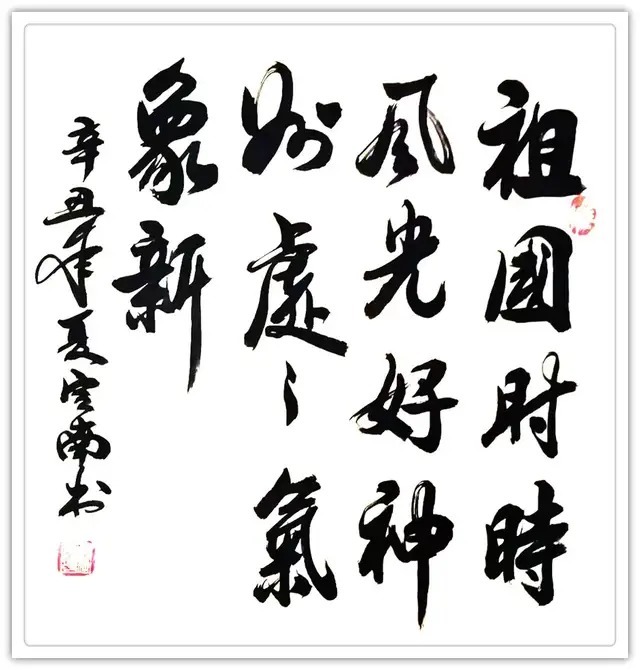 祖國时時
风光好神
州處々氣
象新
辛丑年夏南书